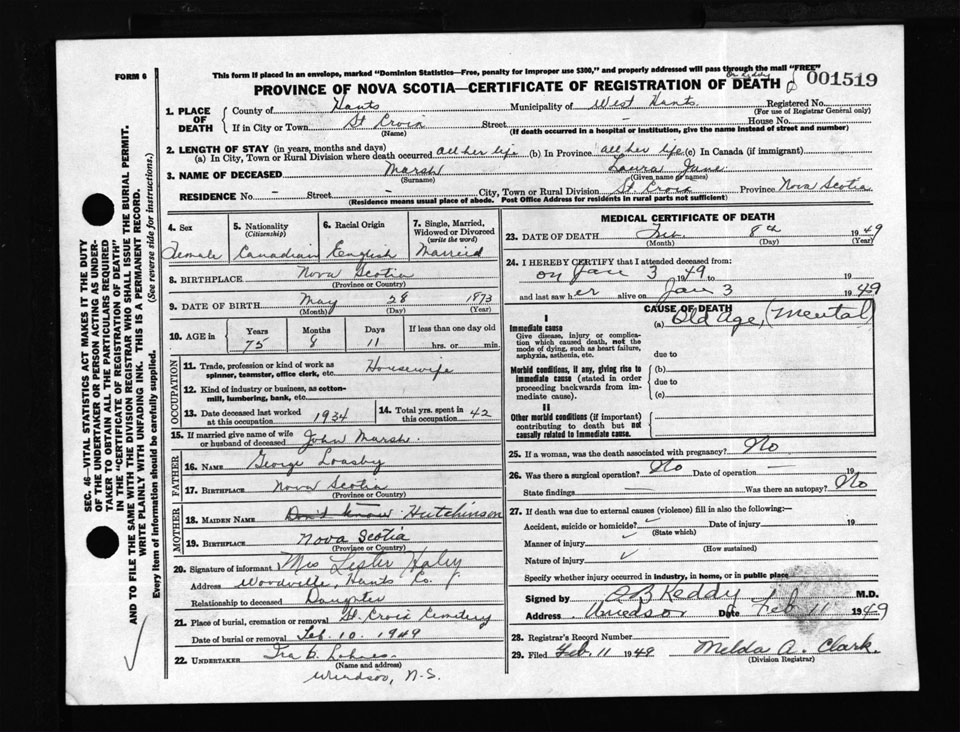 FORM 6
This form if placed in an envelope, marked "Dominion Statistics—Free, penalty for improper use $300," and properly addressed will pass through the mail "FREE"
PROVINCE OF NOVA SCOTIA—CERTIFICATE OF REGISTRATION OF DEATH
Dr Keddy
001519
1. PLACE OF DEATH
County of Hants Municipality of West Hants. Registered No.
(For use of Registrar General only)
If in City or Town St Croix Street — House No.
(Name) (If death occurred in a hospital or institution, give the name instead of street and number)
2. LENGTH OF STAY (in years, months and days)
(a) In City, Town or Rural Division where death occurred all her life (b) In Province all her life (c) In Canada (if immigrant)
3. NAME OF DECEASED Marsh Laura Jane
(Surname) (Given name or names)
RESIDENCE No — Street — City, Town or Rural Division St Croix Province Nova Scotia
(Residence means usual place of abode. Post Office Address for residents in rural parts not sufficient)
4. Sex 5. Nationality (Citizenship) 6. Racial Origin 7. Single, Married, Widowed or Divorced (write the word)
Female Canadian English Married
8. BIRTHPLACE Nova Scotia
(Province or Country)
9. DATE OF BIRTH May 28 1873
(Month) (Day) (Year)
10. AGE in Years Months Days If less than one day old
75 8 11 hrs. or min.
OCCUPATION
11. Trade, profession or kind of work as spinner, teamster, office clerk, etc. Housewife
12. Kind of industry or business, as cotton-mill, lumbering, bank, etc.
13. Date deceased last worked at this occupation 1934
14. Total yrs. spent in this occupation 42
15. If married give name of wife or husband of deceased John Marsh.
FATHER
16. NAME George Loasby
17. BIRTHPLACE Nova Scotia
(Province or Country)
MOTHER
18. MAIDEN NAME Don't know Hutchinson
19. BIRTHPLACE Nova Scotia
(Province or Country)
20. Signature of informant Mrs Lester Haley
Address Woodville, Hants Co.
Relationship to deceased Daughter
21. Place of burial, cremation or removal St. Croix Cemetery
Date of burial or removal Feb. 10. 1949
22. UNDERTAKER Ira B. Lohnes
(Name and address)
Windsor, N.S.
MEDICAL CERTIFICATE OF DEATH
23. DATE OF DEATH Feb. 8th 1949
(Month) (Day) (Year)
24. I HEREBY CERTIFY that I attended deceased from
on Jan 3 1949 to 19
and last saw her alive on Jan 3 1949
CAUSE OF DEATH
I
Immediate cause
Give disease, injury or complication which caused death, not the mode of dying, such as heart failure, asphyxia, asthenia, etc.
(a) Old Age, (Mental)
due to
Morbid conditions, if any, giving rise to immediate cause (stated in order proceeding backwards from immediate cause)
(b)
due to
(c)
II
Other morbid conditions (if important) contributing to death but not causally related to immediate cause.
25. If a woman, was the death associated with pregnancy? No
26. Was there a surgical operation? No Date of operation — 19
State findings — Was there an autopsy? No
27. If death was due to external causes (violence) fill in also the following:—
Accident, suicide or homicide? Date of injury 19
(State which)
Manner of injury
(How sustained)
Nature of injury
Specify whether injury occurred in industry, in home, or in public place
Signed by A B Keddy M.D.
Address Windsor Date Feb 11 1949
28. Registrar's Record Number
29. Filed Feb. 11 1949 Melda A. Clark.
(Division Registrar)
SEC. 46—VITAL STATISTICS ACT MAKES IT THE DUTY
OF THE UNDERTAKER OR PERSON ACTING AS UNDER-
TAKER TO OBTAIN ALL THE PARTICULARS REQUIRED
IN THE "CERTIFICATE OF REGISTRATION OF DEATH"
AND TO FILE THE SAME WITH THE DIVISION REGISTRAR WHO SHALL ISSUE THE BURIAL PERMIT.
WRITE PLAINLY WITH UNFADING INK. THIS IS A PERMANENT RECORD.
Every item of information should be carefully supplied. (See reverse side for instructions.)